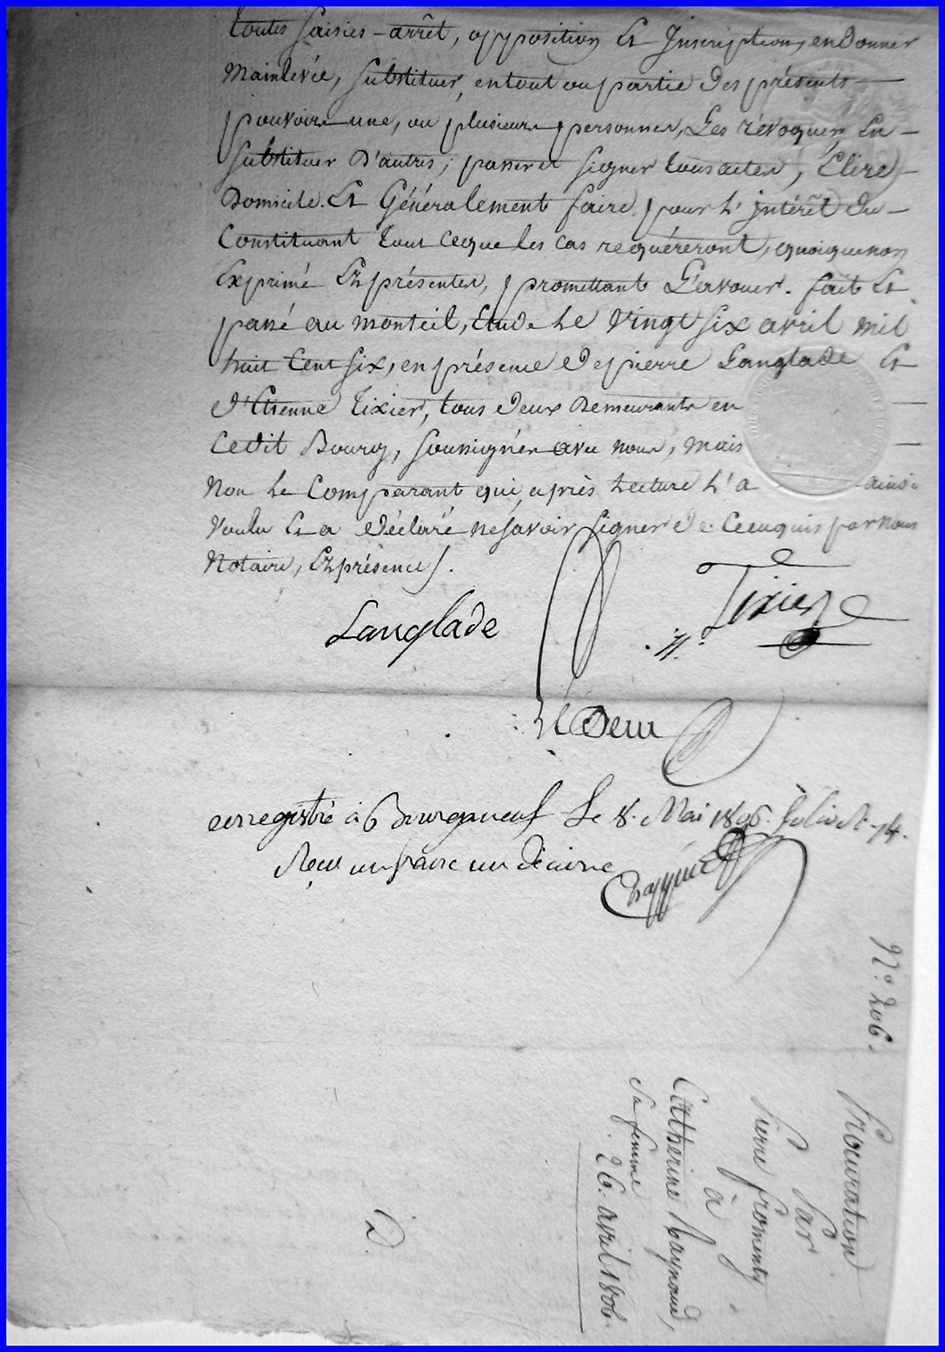 toutes saisies-arrêt, opposition Et Inscription, en Donner
Mainlevée, substituer, en tout ou partie des présents
pouvoirs une, ou plusieurs personnes, Les révoquer, En
substituer D'autres, passer et signer tous actes, Elire
Domicile. Et Généralement faire, pour L'intérêt du
Constituant tout ceque les cas requéreront, quoique non
Exprimé Ez présentes, promettant L'avouer. fait Et
passé au monteil, Etude Le vingt six avril mil
huit Cent six, en présence de pierre Langlade Et
d'Etienne Tixier, tous deux Demeurants en
Cedit Bourg, soussignés avec nous, mais
Non Le Comparant qui, après Lecture L'a ainsi
voulu Et a déclaré ne savoir signer de Ce enquis par nous
Notaire, Ez présences.
Langlade
Tixier
enregistré à Bourganeuf Le 8. Mai 1806. folio 74.
Reçu un franc un décime
No. 206.
Procuration
Par
Pierre fromenty
à
Catherine Raynaud,
sa femme
26. avril 1806.